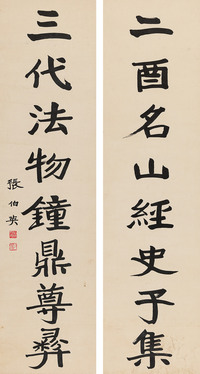 二酉名山經史子集
三代法物鐘鼎尊彝
張伯英